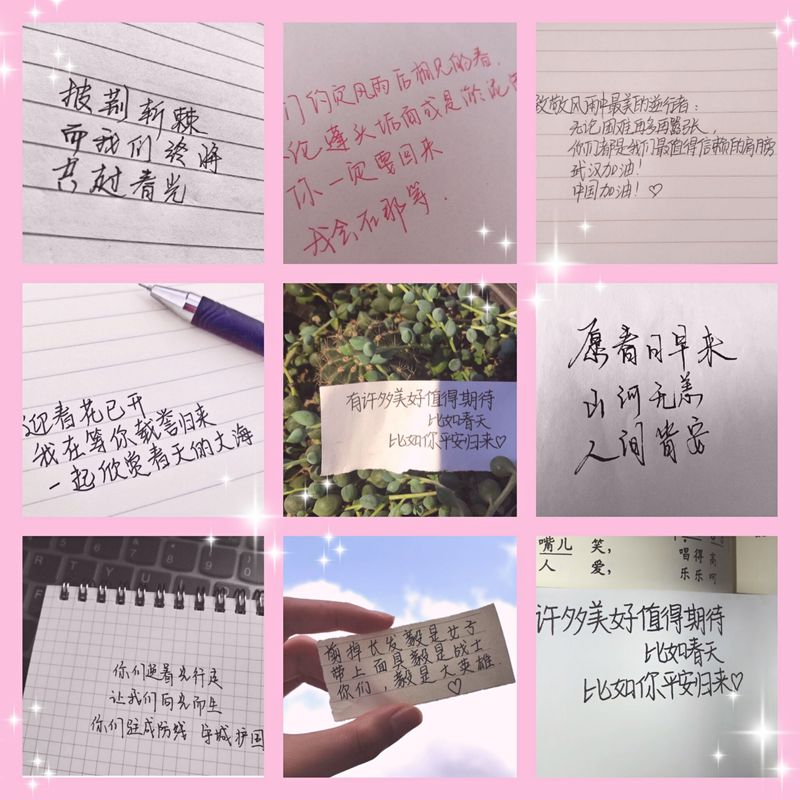 披荆斩棘
而我们终将
共赴春光
们约定风雨后相见的春,
论蓬头垢面或是淤泥
你一定要回来
我会在那等.
致敬风雨中最美的逆行者:
无论困难再多再嚣张,
你们都是我们最值得信赖的肩膀
武汉加油!
中国加油!♡
迎春花已开
我在等你载誉归来
一起欣赏春天的大海
有许多美好值得期待
比如春天
比如你平安归来♡
愿春日早来
山河无恙
人间皆安
你们逆着光行走
让我们向光而生
你们驻成防线 守城护国
剪掉长发毅是女子
带上面具毅是战士
你们,毅是大英雄.
♡
嘴儿 笑, 唱得高
人 爱, 乐乐呵
许多美好值得期待
比如春天
比如你平安归来♡